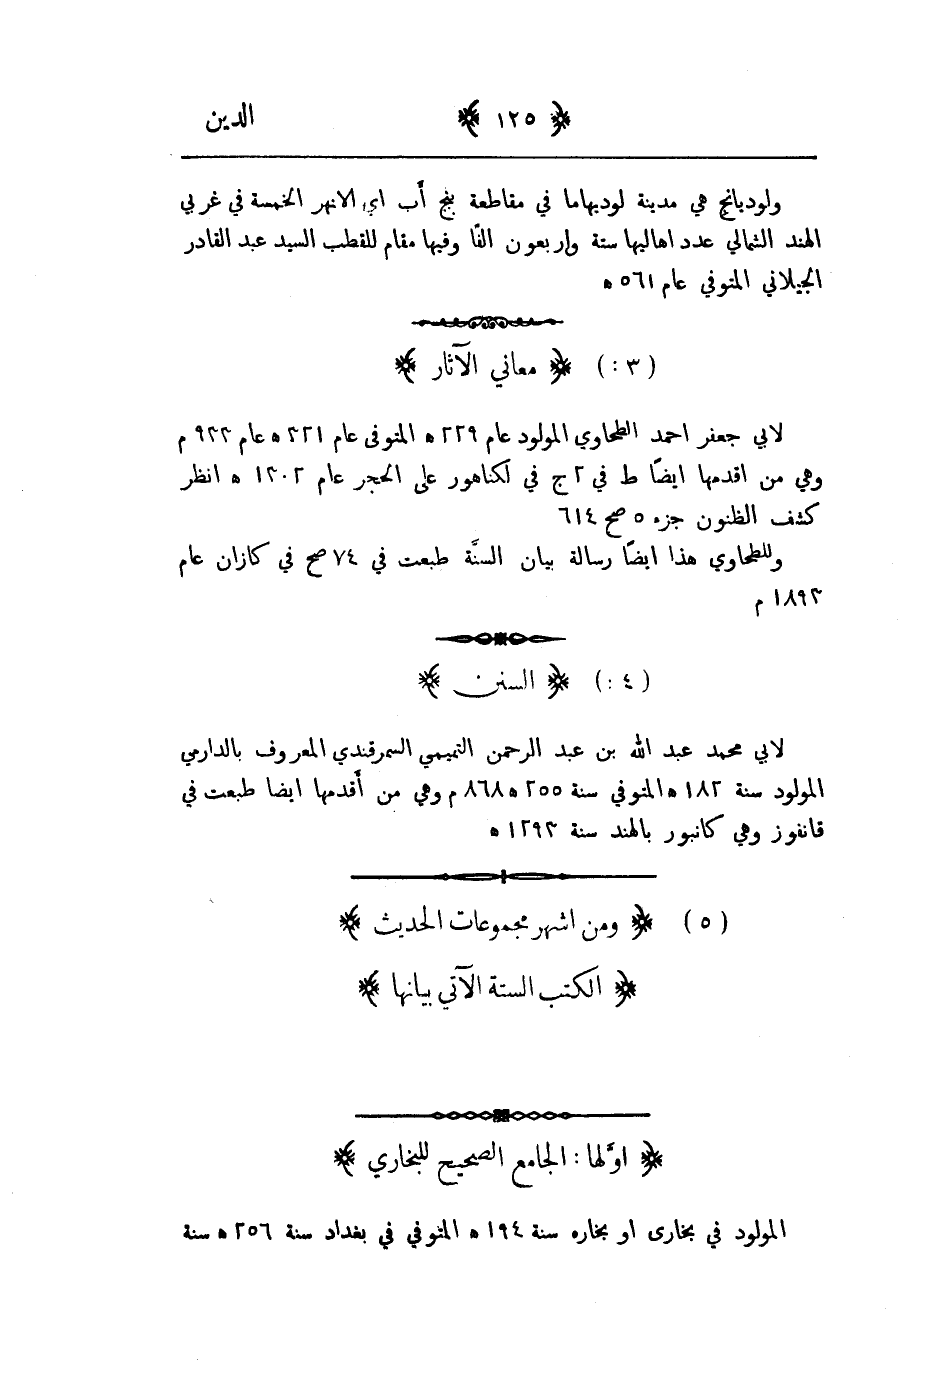 ﴿ ١٢٥ ﴾ الدين
ولوديانج هي مدينة لوديهاما في مقاطعة پنج أَب اي الانهر الخمسة في غربي
الهند الشمالي عدد اهاليها ستة واربعون الفًا وفيها مقام للقطب السيد عبد القادر
الجيلاني المتوفي عام ٥٦١ ه
(٣ :) ﴿ معاني الآثار ﴾
لابي جعفر احمد الطحاوي المولود عام ٢٢٩ ه المتوفى عام ٣٢١ ه عام ٩٣٣ م
وهي من اقدمها ايضًا ط في ٢ ج في لكناهور على الحجر عام ١٣٠٢ ه انظر
كشف الظنون جزء ٥ صح ٦١٤
وللطحاوي هذا ايضًا رسالة بيان السنَّة طبعت في ٧٤ صح في كازان عام
١٨٩٣ م
(٤ :) ﴿ السنن ﴾
لابي محمد عبد الله بن عبد الرحمن التميمي السمرقندي المعروف بالدارمي
المولود سنة ١٨٢ ه المتوفي سنة ٢٥٥ ه ٨٦٨ م وهي من أَقدمها ايضا طبعت في
قانفوز وهي كانبور بالهند سنة ١٢٩٣ ه
(٥) ﴿ ومن اشهر مجموعات الحديث ﴾
﴿ الكتب الستة الآتي بيانها ﴾
﴿ اوَّلها : الجامع الصحيح للبخاري ﴾
المولود في بخارى او بخاره سنة ١٩٤ ه المتوفي في بغداد سنة ٢٥٦ ه سنة